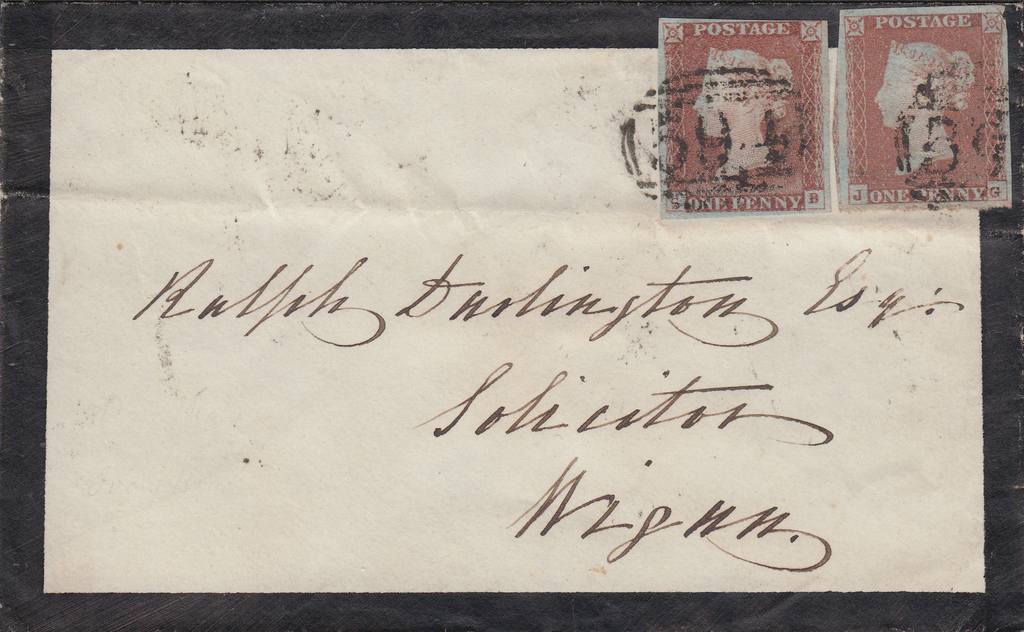 POSTAGE POSTAGE
594
B ONE PENNY. J ONE PENNY. G
Ralph Darlington Esqr:
Solicitor
Wigan.